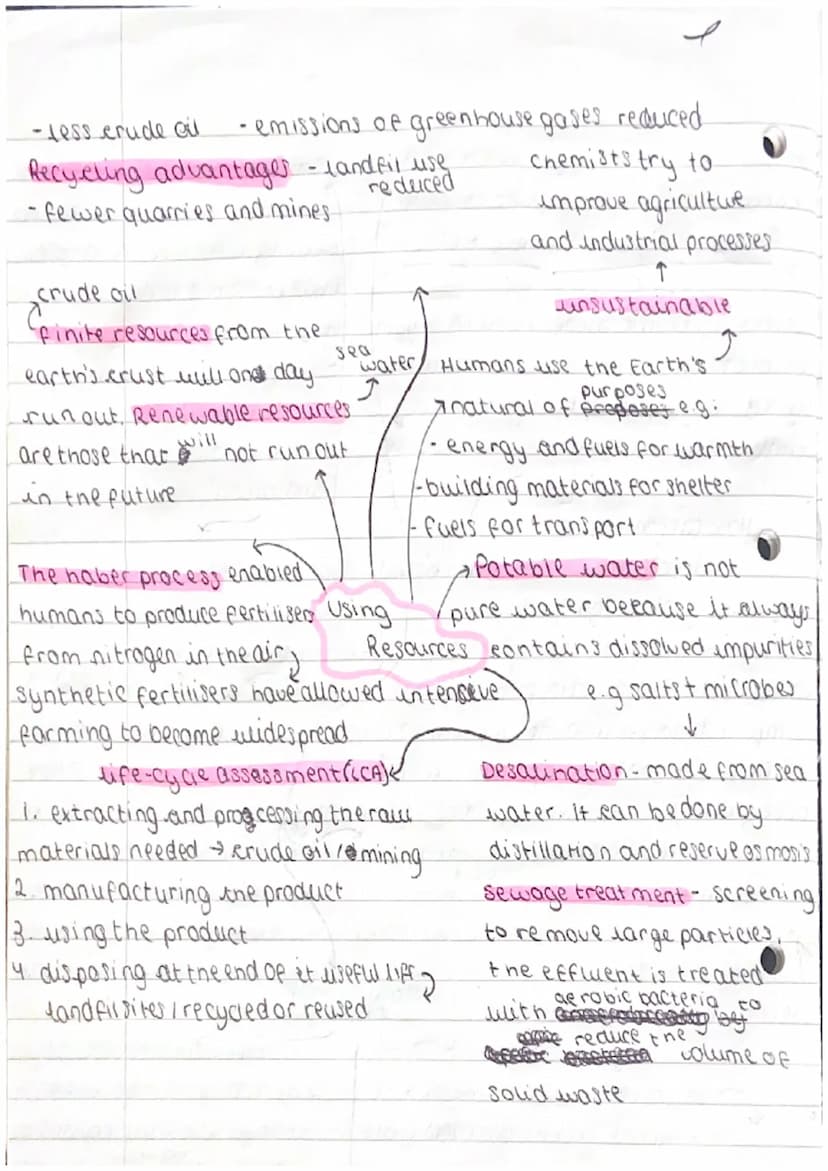 - less crude oil - emissions of greenhouse gases reduced
Recycling advantages - landfil use
reduced
- fewer quarries and mines
chemists try to
improve agriculture
and industrial processes
unsustainable
crude oil
finite resources from the
earth's crust will one day
run out. Renewable resources
are those that will not run out
in the future
sea
water
Humans use the Earth's
natural of purposes e.g:
- energy and fuels for warmth
- building materials for shelter
- fuels for transport
The haber process enabled
humans to produce fertilisers
from nitrogen in the air
synthetic fertilisers have allowed intensive
farming to become widespread
Using
Resources
Potable water is not
pure water because it always
contains dissolved impurities
e.g salts + microbes
life-cycle assessment (LCA)
1. extracting and processing the raw
materials needed → crude oil / mining
2. manufacturing the product
3. using the product
4 disposing at the end of it useful life
landfil sites / recycled or reused
Desalination - made from sea
water. It can be done by
distillation and reserve osmosis
sewage treatment - screening
to remove large particles.
the effluent is treated
with aerobic bacteria to
reduce the
volume of
solid waste